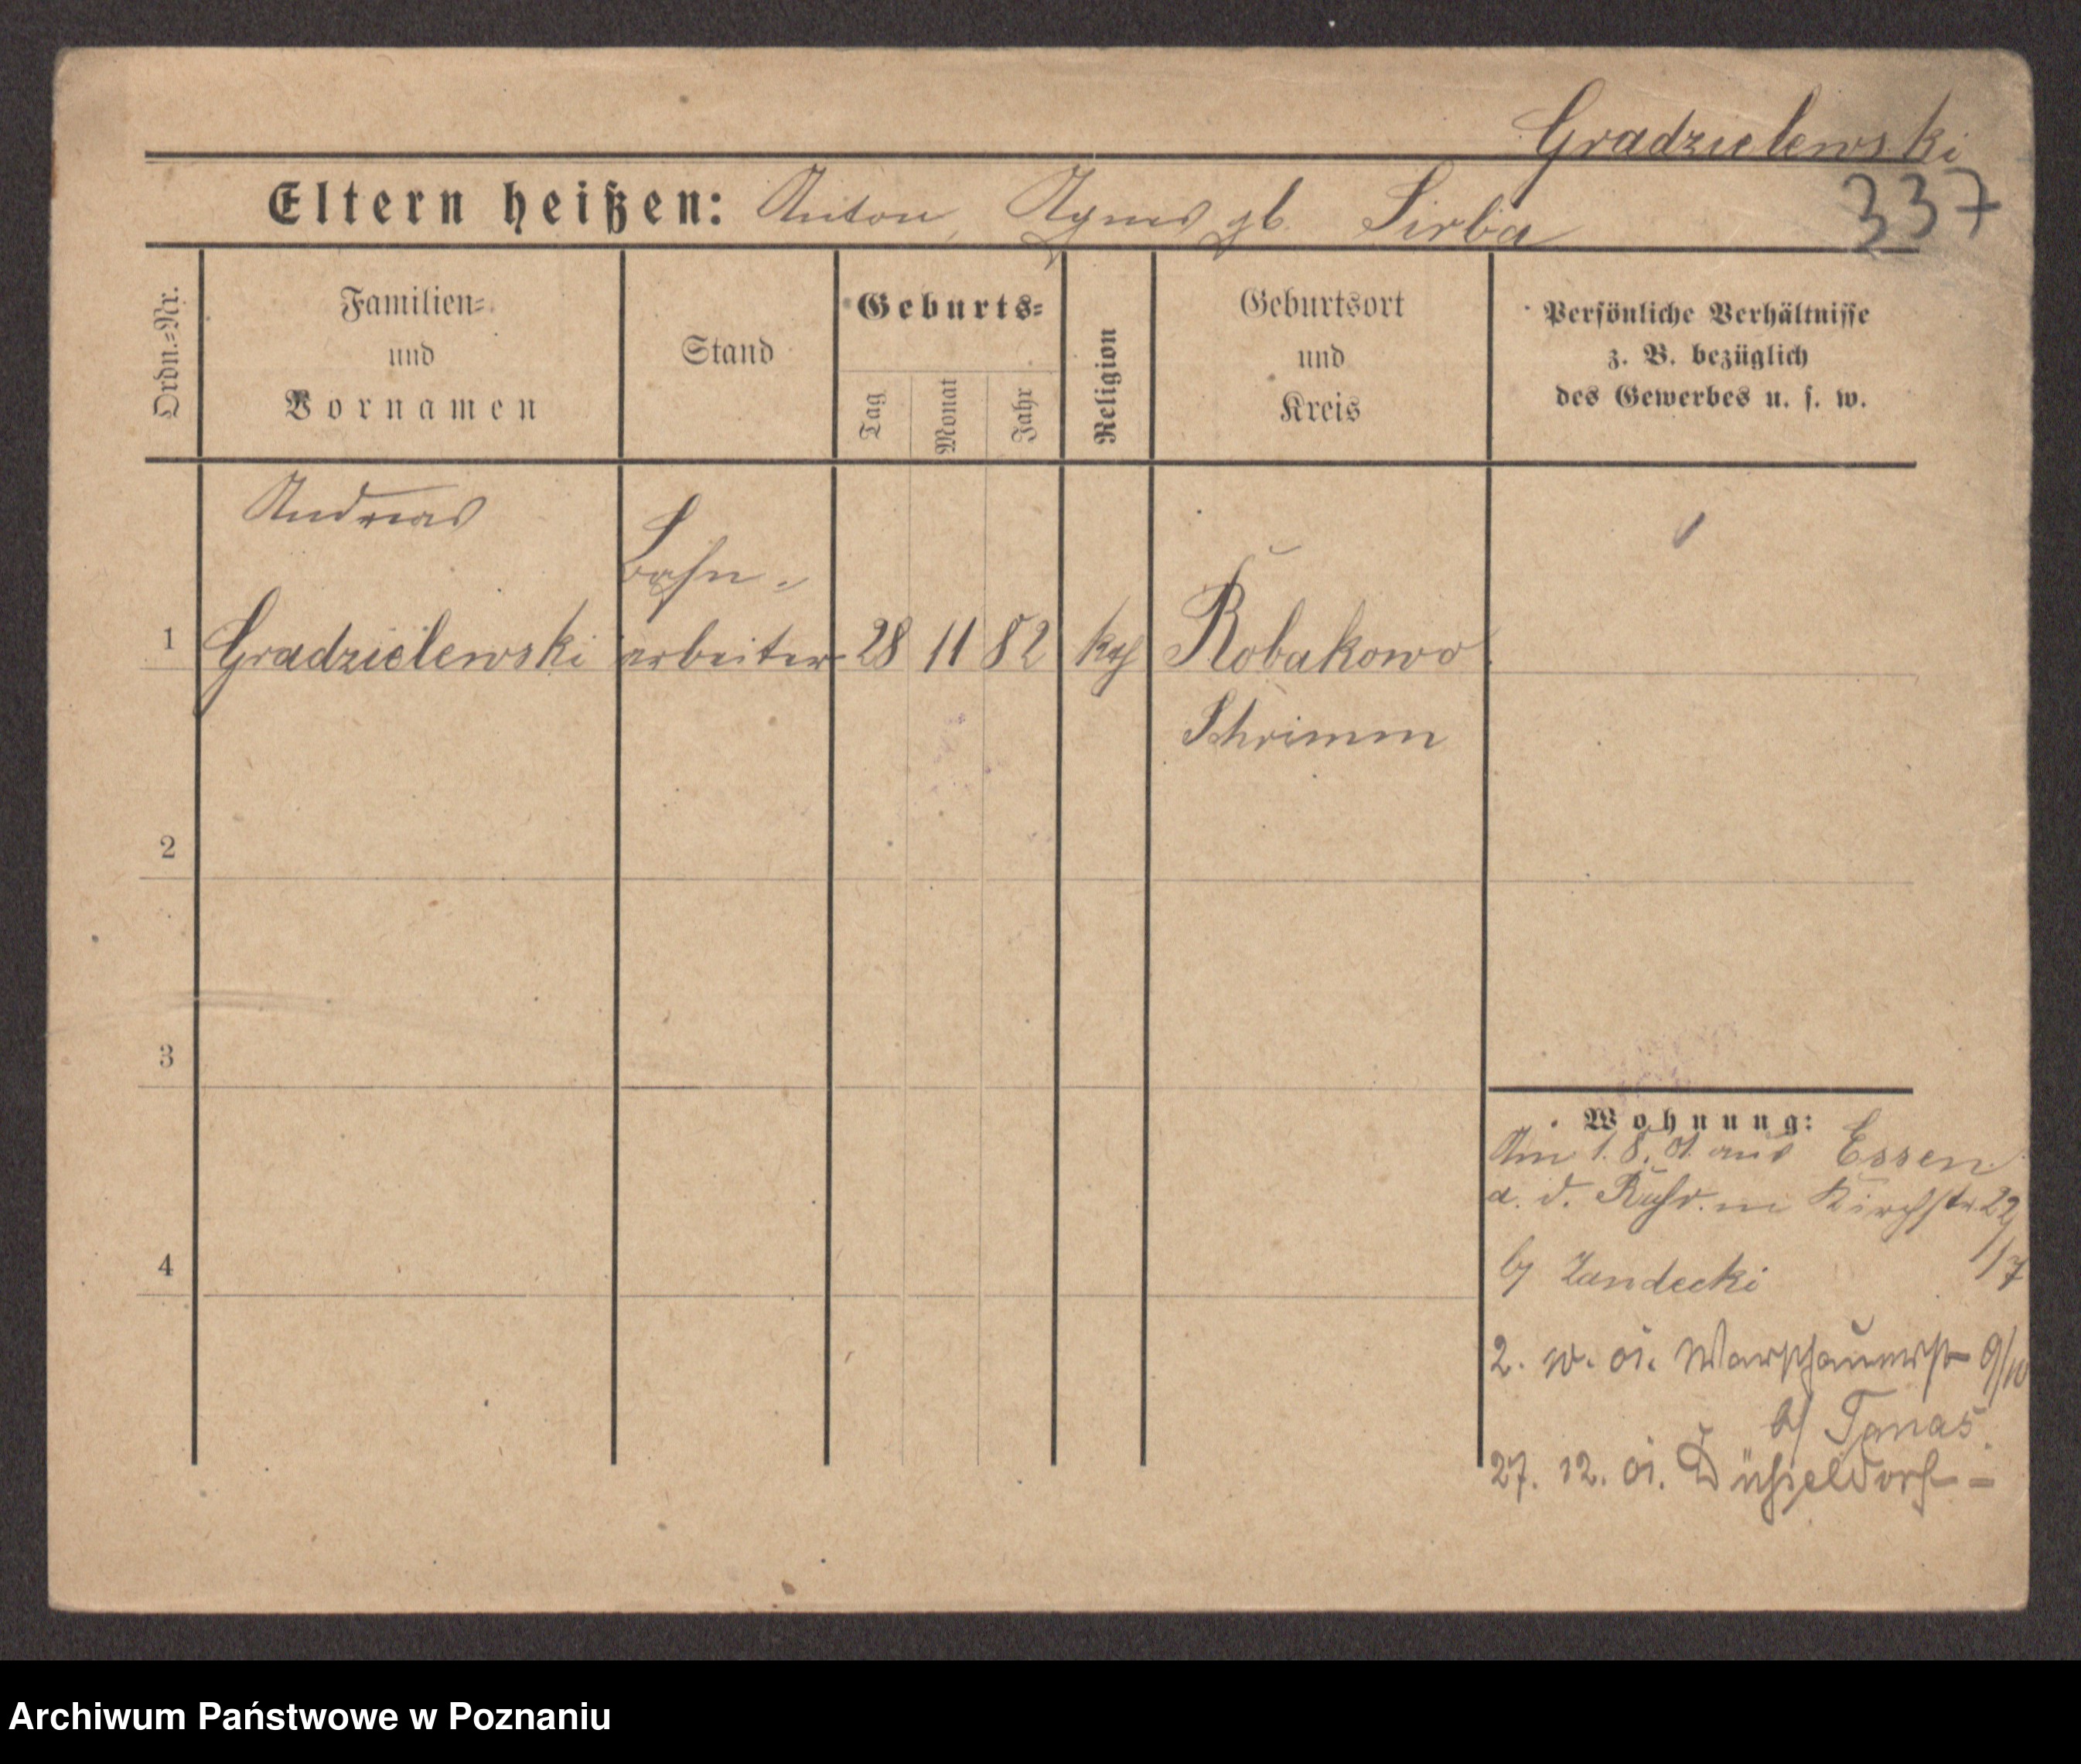 Gradzielewski
337
Eltern heißen: Anton, Agnes gb. Sirba
Ordn.=Nr.
Familien=
und
Vornamen
Stand
Geburts=
Tag
Monat
Jahr
Religion
Geburtsort
und
Kreis
Persönliche Verhältnisse
z. B. bezüglich
des Gewerbes u. s. w.
Andreas
Bahn-
1 Gradzielewski arbeiter 28 11 82 kath Robakowo
Schrimm
2
3
4
Wohnung:
Am 1. 8. 01 aus Essen
a. d. Ruhr. in Kirchstr. 22
b/ Zandecki 1/7
2. 10. 01. Warschauerstr 9/10
b/ Tanas
27. 12. 01. Düsseldorf -
Archiwum Państwowe w Poznaniu